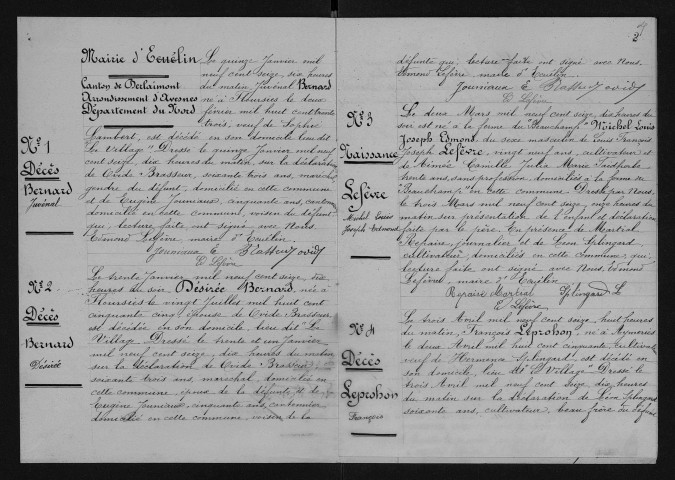 Mairie d'Ecuélin
Canton de Berlaimont
Arrondissement d'Avesnes
Département du Nord
Le quinze Janvier mil
neuf cent seize, six heures
du matin, Juvénal Bernard
né à Floursies le deux
février mil huit cent trente
trois, veuf de Sophie
Lambert, est décédé en son domicile lieu dit
"Le Village" Dressé le quinze Janvier mil neuf
cent seize, dix heures du matin, sur la déclaration
de Ovide Brasseur, soixante trois ans, maréchal
gendre du défunt, domicilié en cette commune
et de Eugène Jouniaux, cinquante ans, cantonnier
domicilié en cette commune, voisin du défunt
qui, lecture faite ont signé avec Nous
Edmond Lefèvre maire d'Ecuélin.
Jouniaux E Brasseur ovide
E Lefèvre
No 1
Décès
Bernard
Juvénal
No 2
Décès
Bernard
Désirée
Le trente Janvier, mil neuf cent seize, dix
heures du soir Désirée Bernard, née à
Floursies le vingt Juillet mil huit cent
cinquante cinq, épouse de Ovide Brasseur
est décédée en son domicile, lieu dit "Le
Village" Dressé le trente et un janvier
mil neuf cent seize, dix heures du matin
sur la déclaration de Ovide Brasseur
soixante trois ans, maréchal, domicilié en
cette commune, époux de la défunte et de
Eugène Jouniaux, cinquante ans, cantonnier
domicilié en cette commune, voisin de la
2
défunte qui, lecture faite ont signé avec Nous
Edmond Lefèvre, maire d'Ecuélin.
Jouniaux E Brasseur ovide
E Lefèvre
No 3
Naissance
Lefèvre
Michel Louis
Joseph Edmond
Le deux Mars mil neuf cent seize, dix heures du
soir est né à la ferme de Beauchamp "Michel Louis
Joseph Edmond" de sexe masculin de Louis François
Joseph Lefèvre, vingt neuf ans, cultivateur et
de Aimée Camille Julia Marie
trente ans, sans profession, domiciliés à la ferme de
"Beauchamp" en cette commune. Dressé par Nous
le trois Mars mil neuf cent seize, onze heures du
matin sur présentation de l'enfant et déclaration
faite par le père. En présence de Martial
Repaire, journalier et de Léon Splingard
cultivateur, domiciliés en cette commune, qui,
lecture faite ont signé avec Nous Edmond
Lefèvre, maire d'Ecuélin
Repaire Martial Splingard L
E Lefèvre
No 4
Décès
Leprohon
François
Le trois Avril mil neuf cent seize, huit heures
du matin, François Leprohon, né à Aymeries
le deux Avril mil huit cent cinquante, cultivateur
veuf de Hermence Splingard, est décédé en
son domicile, lieu dit "Le Village" Dressé le
trois Avril mil neuf cent seize dix heures
du matin sur la déclaration de Léon Splingard
soixante ans, cultivateur, beau frère du défunt